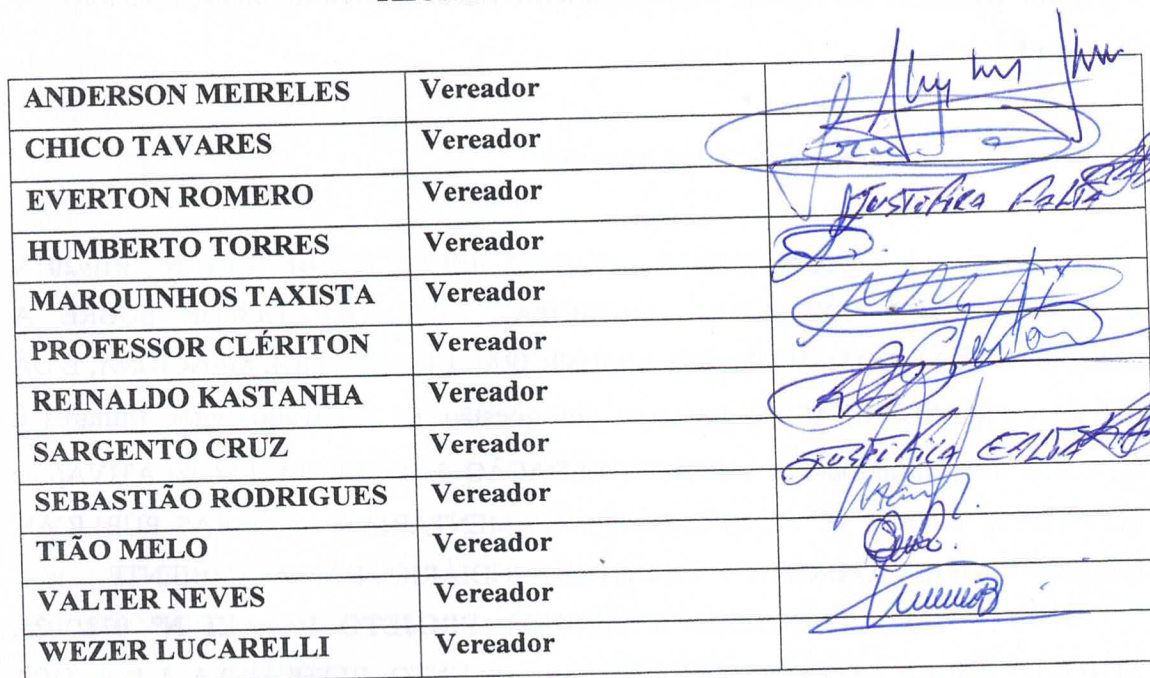 ANDERSON MEIRELES Vereador
CHICO TAVARES Vereador
EVERTON ROMERO Vereador Justifica Falta
HUMBERTO TORRES Vereador
MARQUINHOS TAXISTA Vereador
PROFESSOR CLÉRITON Vereador Cleriton
REINALDO KASTANHA Vereador
SARGENTO CRUZ Vereador Justifica Falta
SEBASTIÃO RODRIGUES Vereador
TIÃO MELO Vereador
VALTER NEVES Vereador
WEZER LUCARELLI Vereador